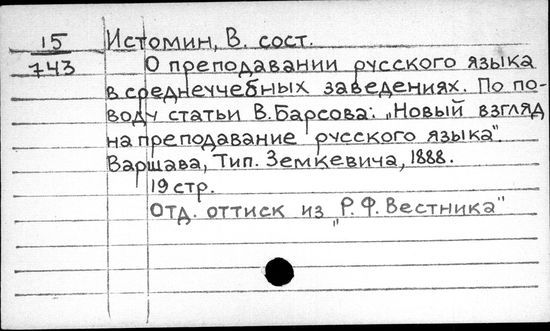 15 Истомин, В. сост.
743 О преподавании русского языка
в среднеучебных заведениях. По по-
воду статьи В. Барсова: „Новый взгляд
на преподавание русского языка".
Варшава, Тип. Земкевича, 1888.
19 стр.
Отд. оттиск из „Р. Ф. Вестника"